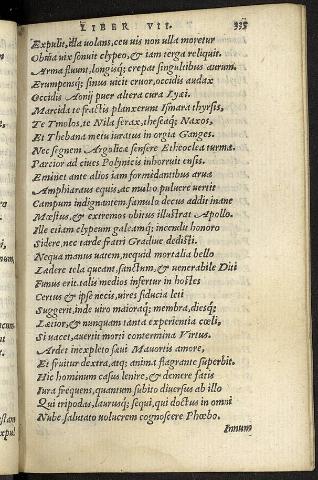 LIBER VII. 335
Expulit, illa uolans, ceu uis non ulla moretur
Obuia uix sonuit clypeo, & iam terga reliquit.
Arma fluunt, longisq; crepat singultibus aurum.
Erumpensq; sinus uicit cruor, occidis audax
Occidis Aonij puer altera cura Lyæi.
Marcida te fractis planxerunt Ismara thyrsis,
Te Tmolos, te Nisa ferax, theseaq; Naxos,
Et Thebana metu iuratus in orgia Ganges.
Nec segnem Argolicæ sensere Etheoclea turmæ
Parcior ad ciues Polynicis inhorruit ensis.
Eminet ante alios iam formidantibus arua
Amphiaraus equis, ac multo puluere uertit
Campum indignantem, famulo decus addit inane
Mœstus, & extremos obitus illustrat Apollo.
Ille etiam clypeum galeamq; incendit honoro
Sidere, nec tarde fratri Gradiue dedisti.
Nequa manus uatem, nequid mortalia bello
Lædere tela queant, sanctum, & uenerabile Diti
Funus erit. talis medios infertur in hostes
Certus & ipse necis, uires fiducia leti
Suggerit, inde uiro maioraq; membra, diesq;
Lætior, & nunquam tanta experientia cœli,
Si uacet, auertit morti contermina Virtus.
Ardet inexpleto sæui Mauortis amore,
Et fruitur dextra, atq; anima flagrante superbit.
Hic hominum casus lenire, & demere fatis
Iura frequens, quantum subito diuersus ab illo
Qui tripodas, laurusq; sequi, qui doctus in omni
Nube salutato uolucrem cognoscere Phœbo.
Innum